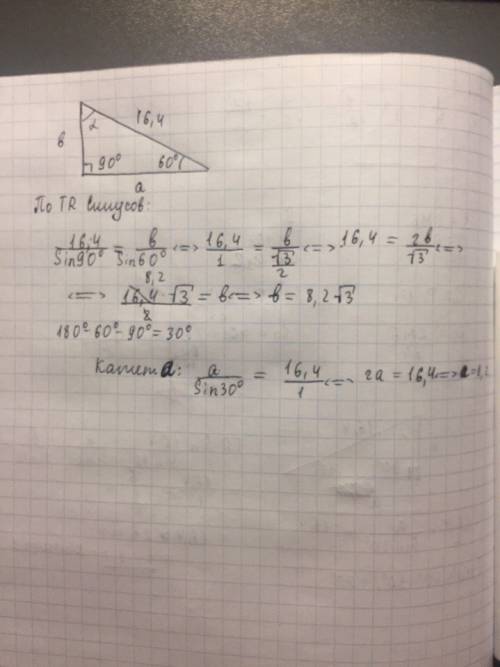 16,4
α
в
90° 60°
a
По TR синусов:
16,4/Sin90° = в/Sin60° <=> 16,4/1 = в/(√3/2) <=> 16,4 = 2в/√3 <=>
8,2
<=> 16,4·√3/2 = в <=> в = 8,2√3
180°-60°-90°=30°
Катет a: a/Sin30° = 16,4/1 <=> 2a = 16,4 <=>